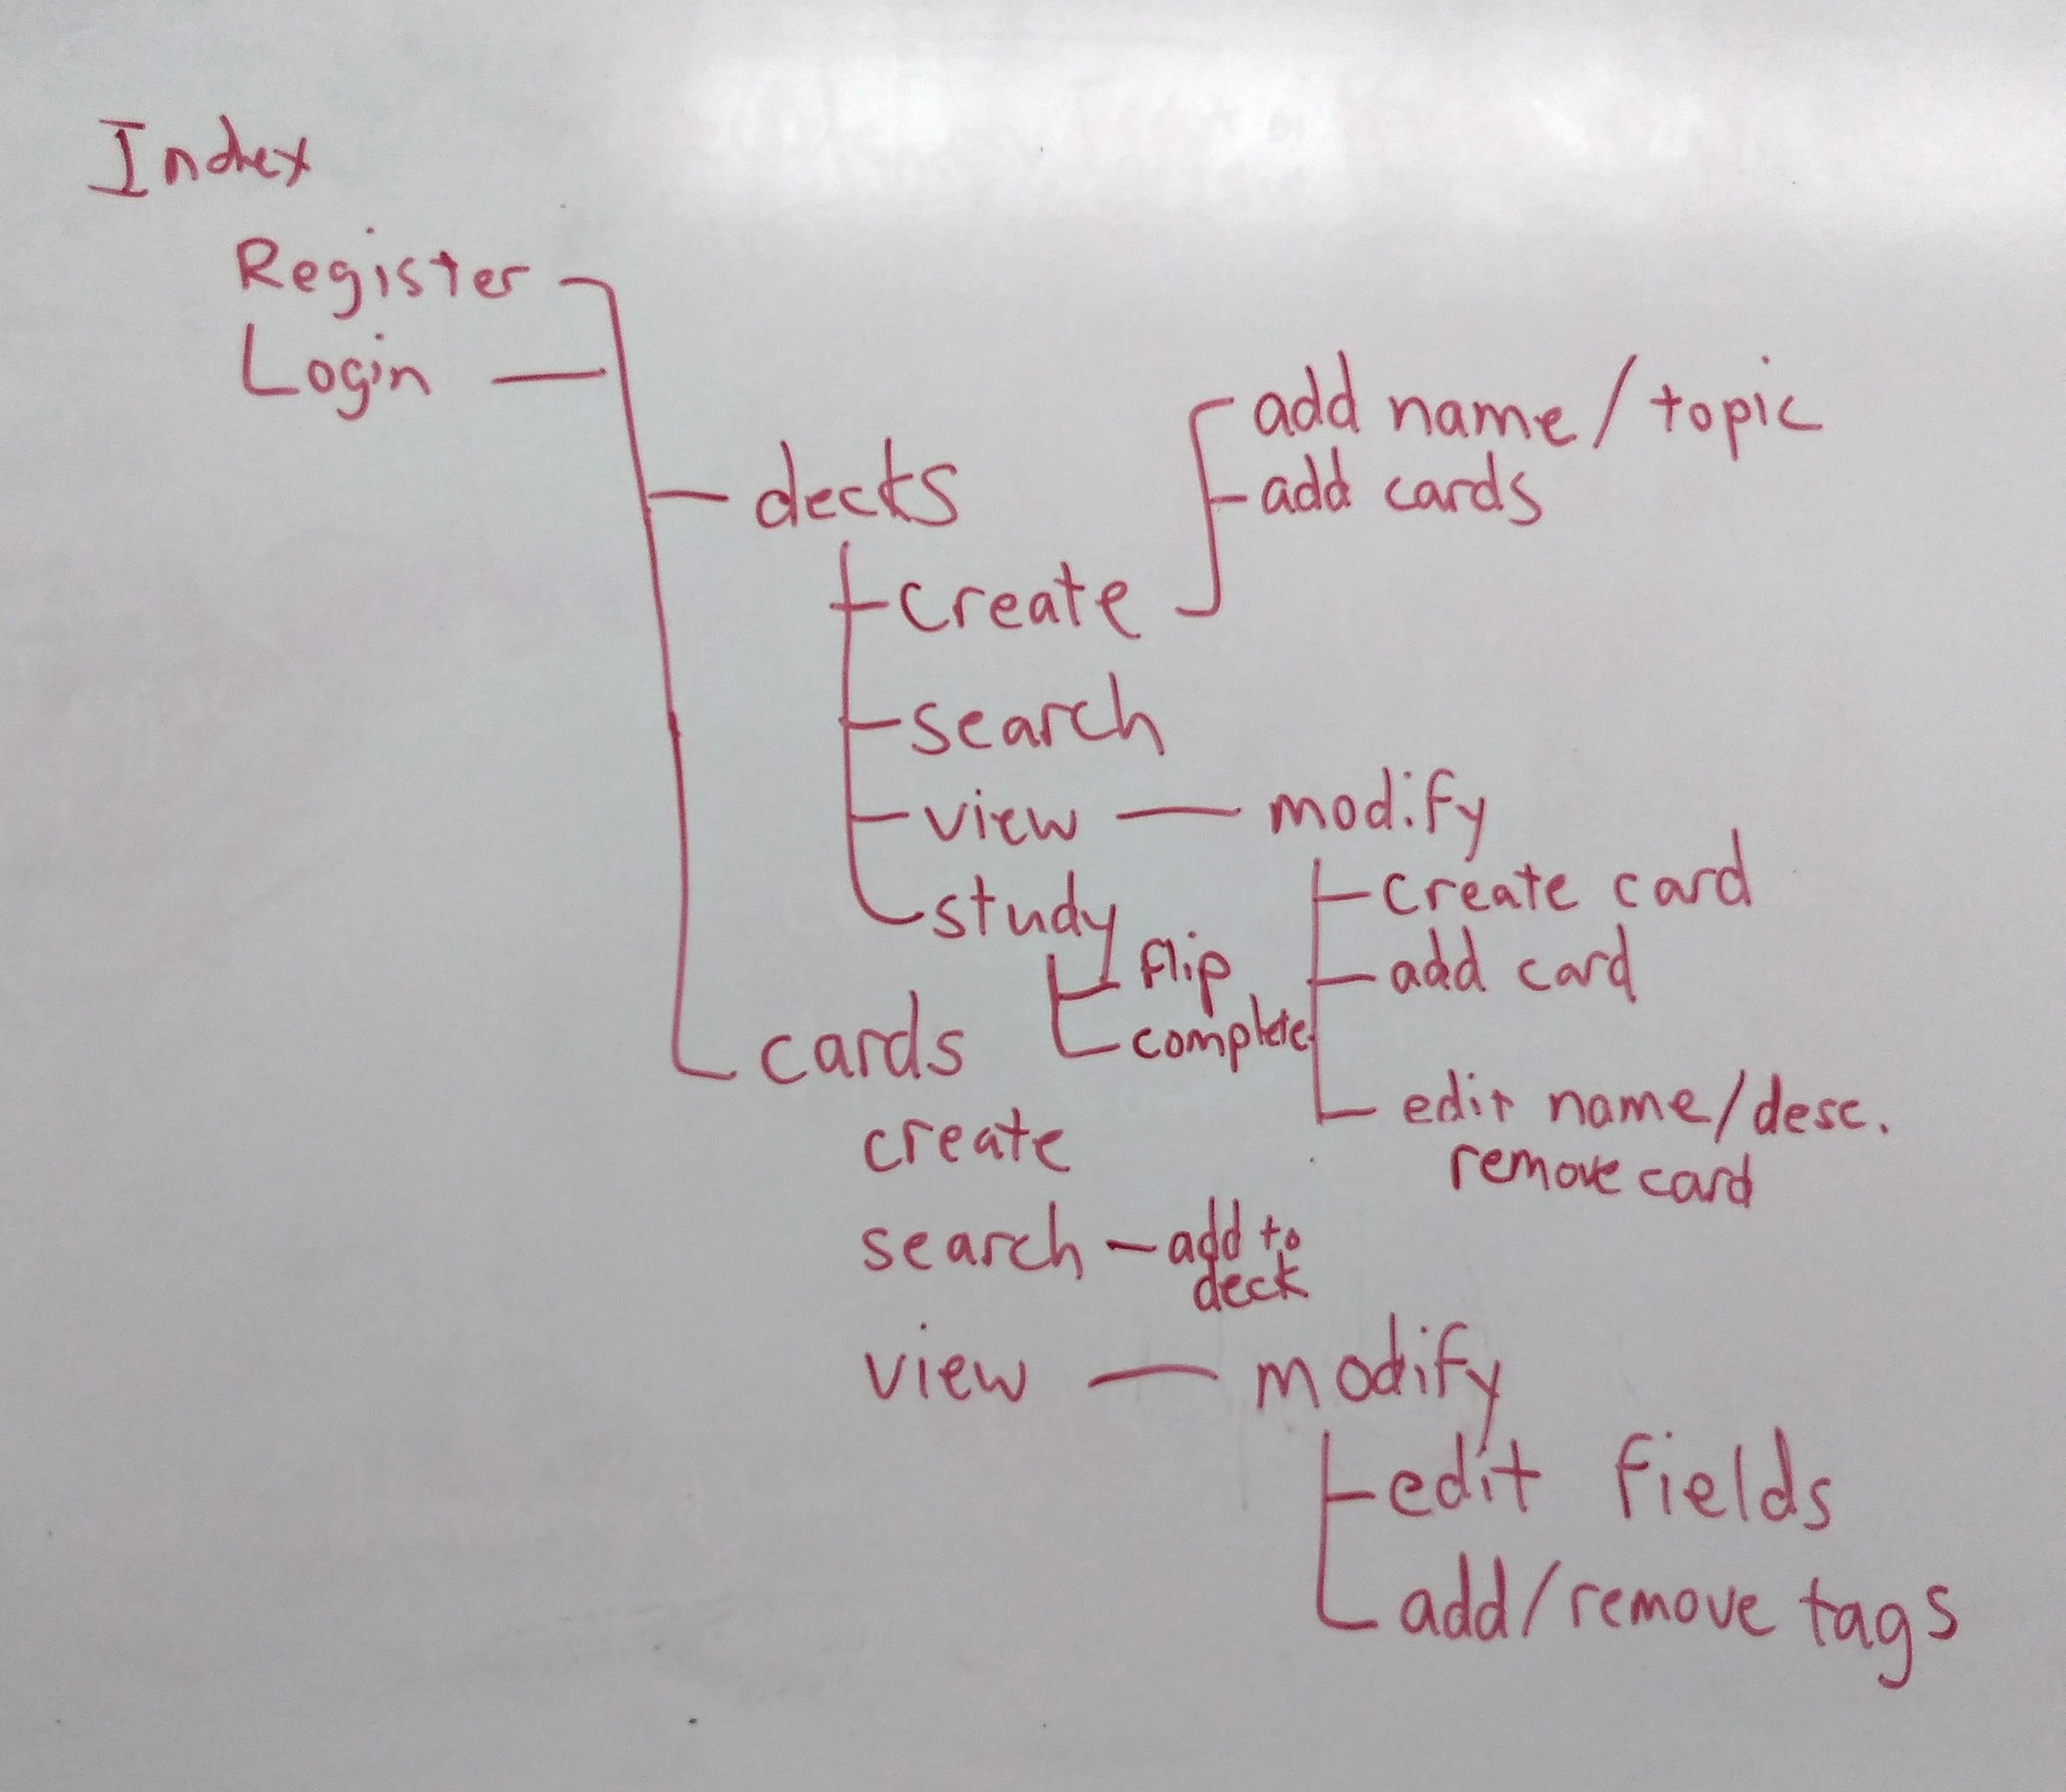 Index
Register
Login
decks
create
add name / topic
add cards
search
view
modify
create card
add card
edit name/desc.
remove card
study
flip
complete
cards
create
search - add to
deck
view
modify
edit fields
add/remove tags